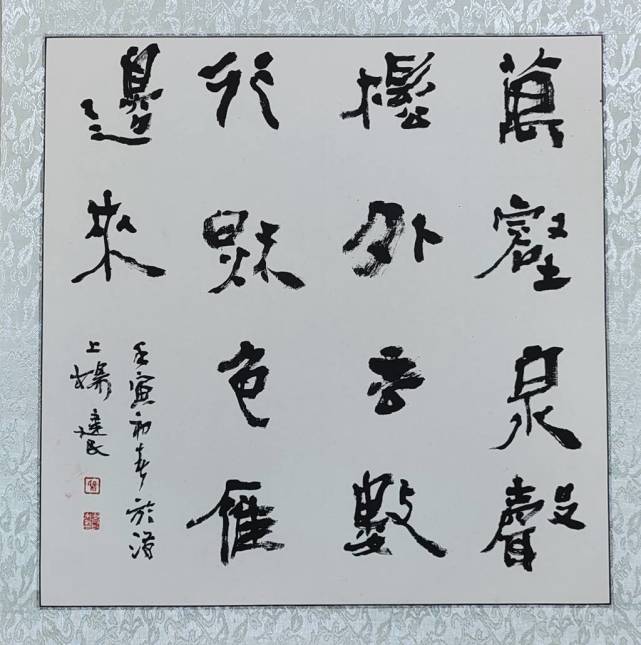 萬壑泉聲
鬆外去數
行秋色雁
邊來
壬寅初春於滬
上建民